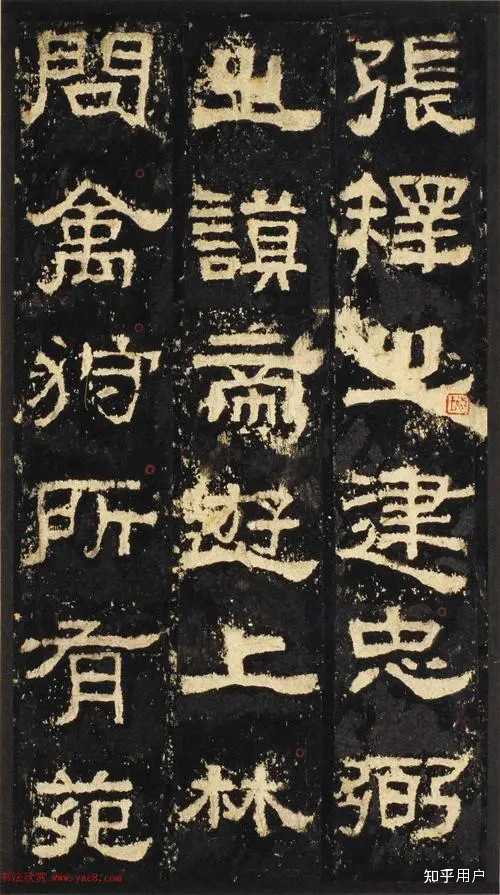 張釋之建忠弼
之謨帝遊上林
問禽狩所有苑
书法欣赏 www.yac8.com
知乎用户